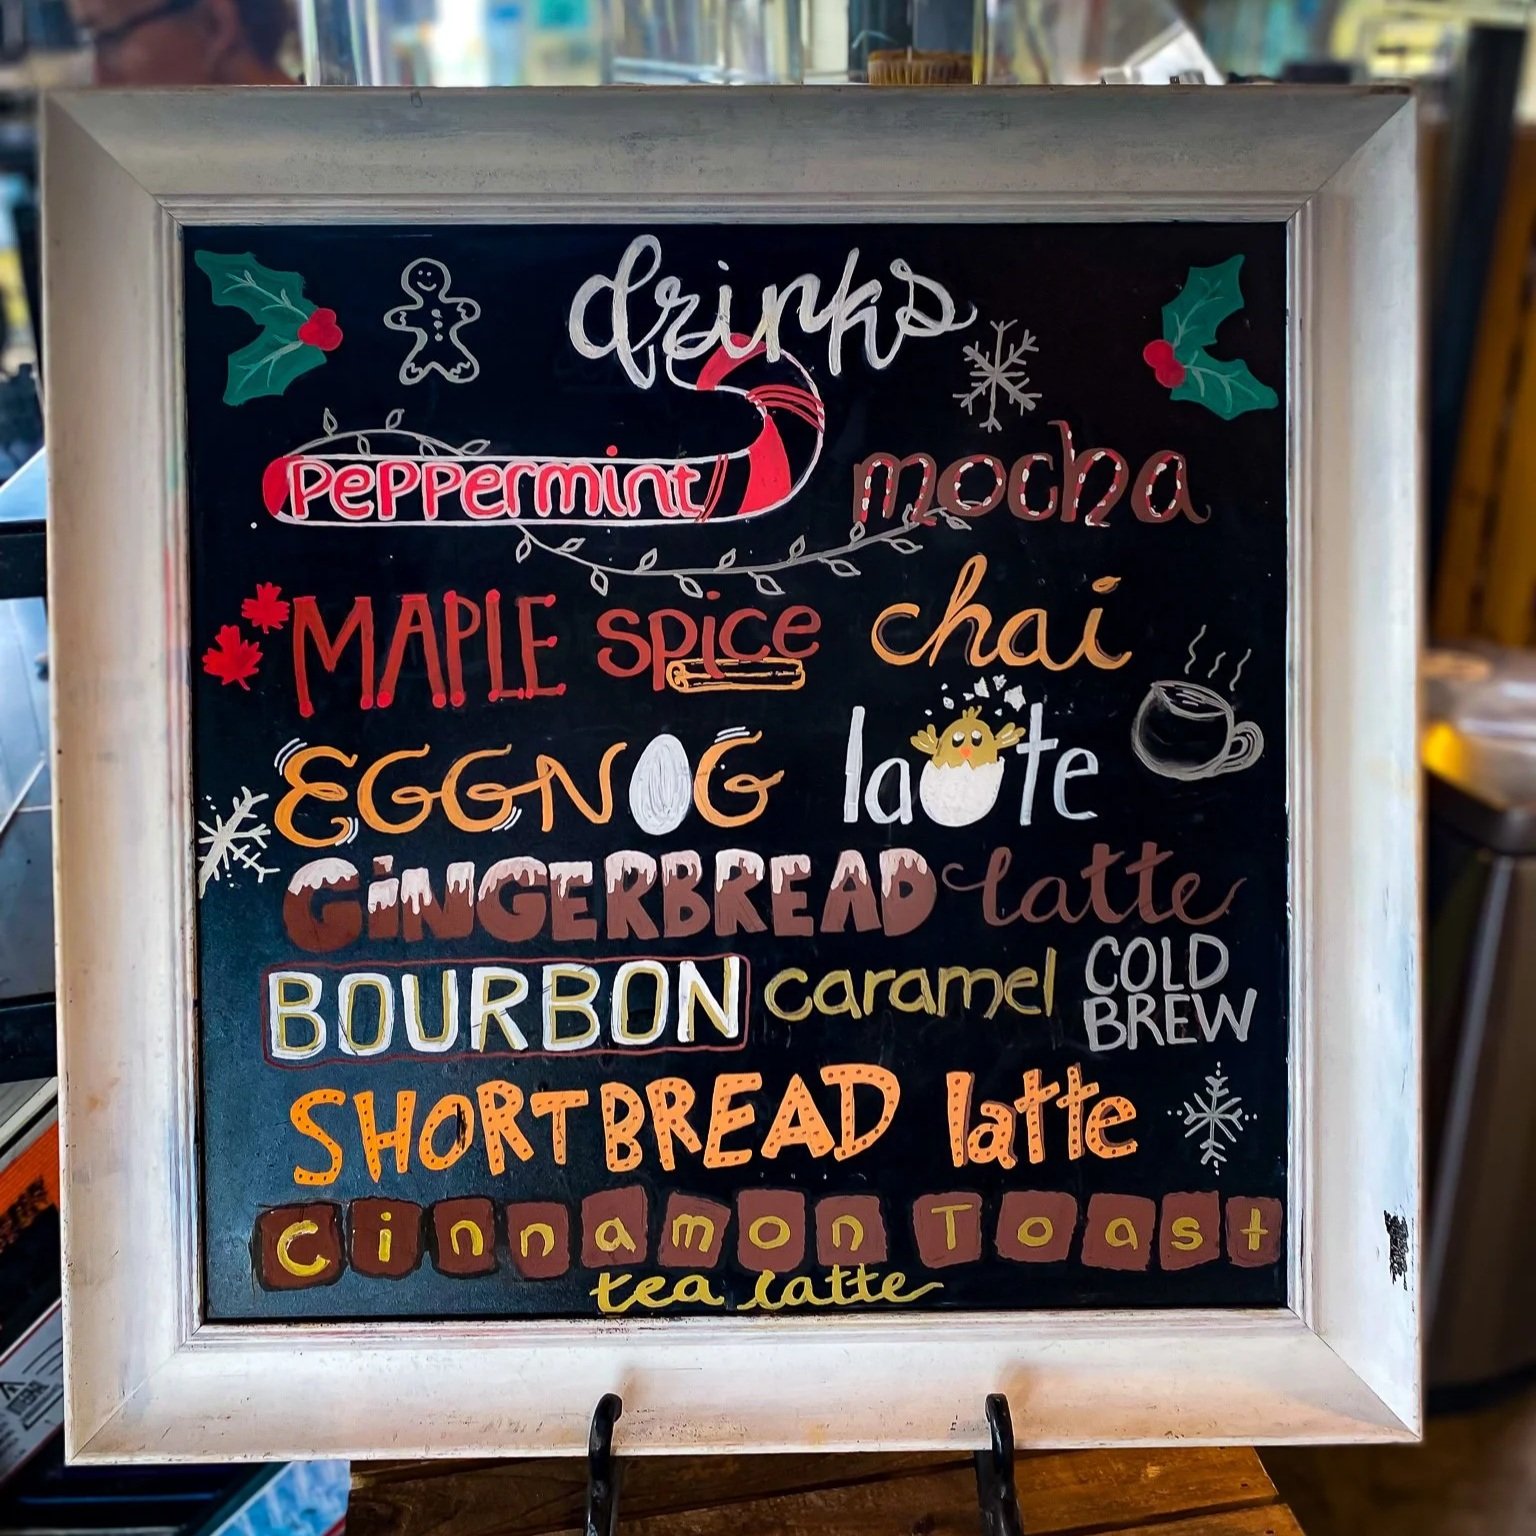 drinks
Peppermint mocha
MAPLE spice chai
EGGNOG latte
GINGERBREAD latte
BOURBON caramel COLD BREW
SHORTBREAD latte
Cinnamon Toast
tea latte